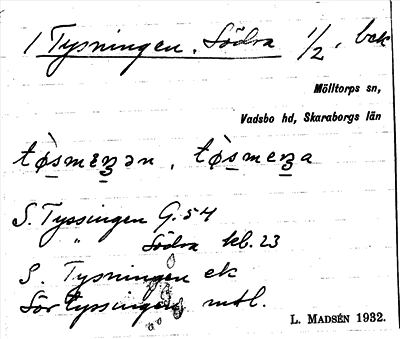 1 Tysningen, Södra 1/2, bek
Mölltorps sn,
Vadsbo hd, Skaraborgs län
S. Tyssingen G. 54
" Södra kb. 23
S. Tysningen ek
Sör tyssingen mtl.
L. MADSÉN 1932.